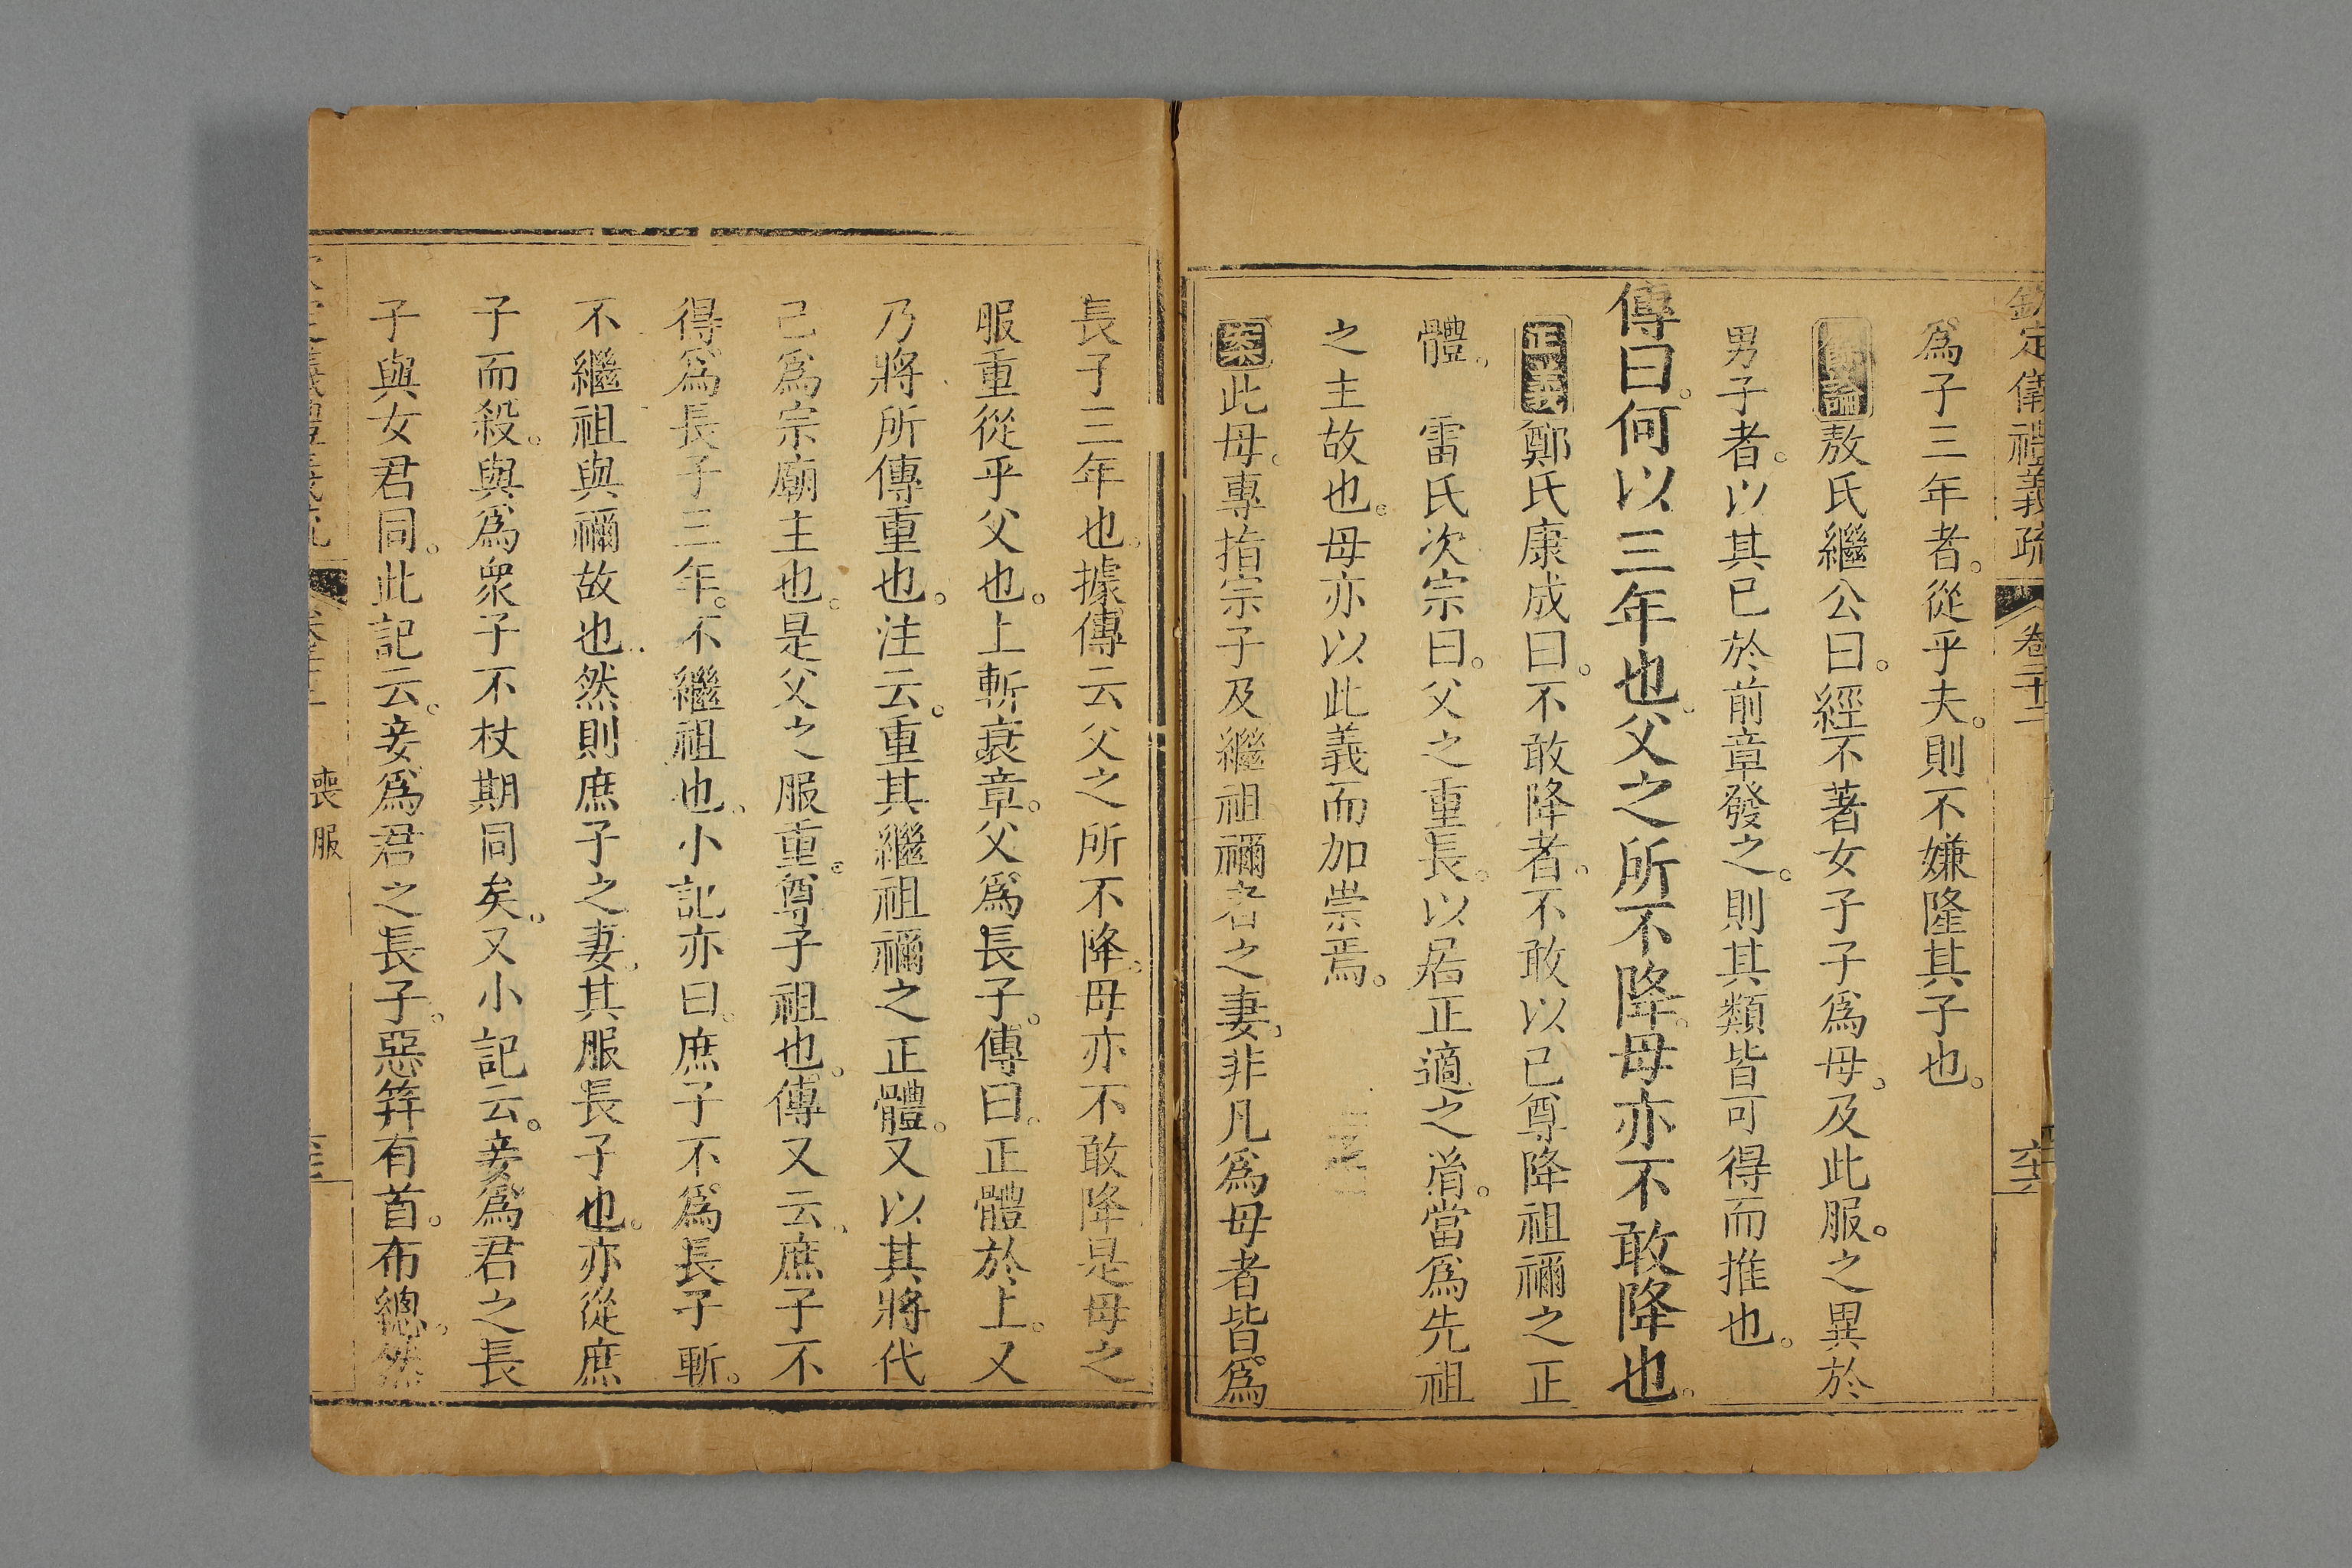 欽定儀禮義疏 卷二十二
爲子三年者。從乎夫。則不嫌隆其子也。
餘論敖氏繼公曰。經不著女子子爲母。及此服。之異於
男子者。以其已於前章發之。則其類皆可得而推也。
傳曰。何以三年也。父之所不降。母亦不敢降也。
正義鄭氏康成曰。不敢降者。不敢以己尊降祖禰之正
體。 雷氏次宗曰。父之重長。以居正適之胤。當爲先祖
之主故也。母亦以此義而加崇焉。
案此母。專指宗子及繼祖禰者之妻。非凡爲母者皆爲
長子三年也。據傳云父之所不降。母亦不敢降是母之
服重從乎父也。上斬衰章。父爲長子。傳曰。正體於上。又
乃將所傳重也。注云。重其繼祖禰之正體。又以其將代
己爲宗廟主也。是父之服重。尊子祖也。傳又云。庶子不
得爲長子三年。不繼祖也。小記亦曰。庶子不爲長子斬。
不繼祖與禰故也。然則庶子之妻。其服長子也。亦從庶
子而殺。與爲衆子不杖期同矣。又小記云。妾爲君之長
子與女君同。此記云。妾爲君之長子。惡笄有首。布總。然
喪服